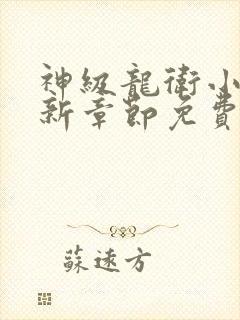 神級龍衛小
新章節免費
蘇遠方